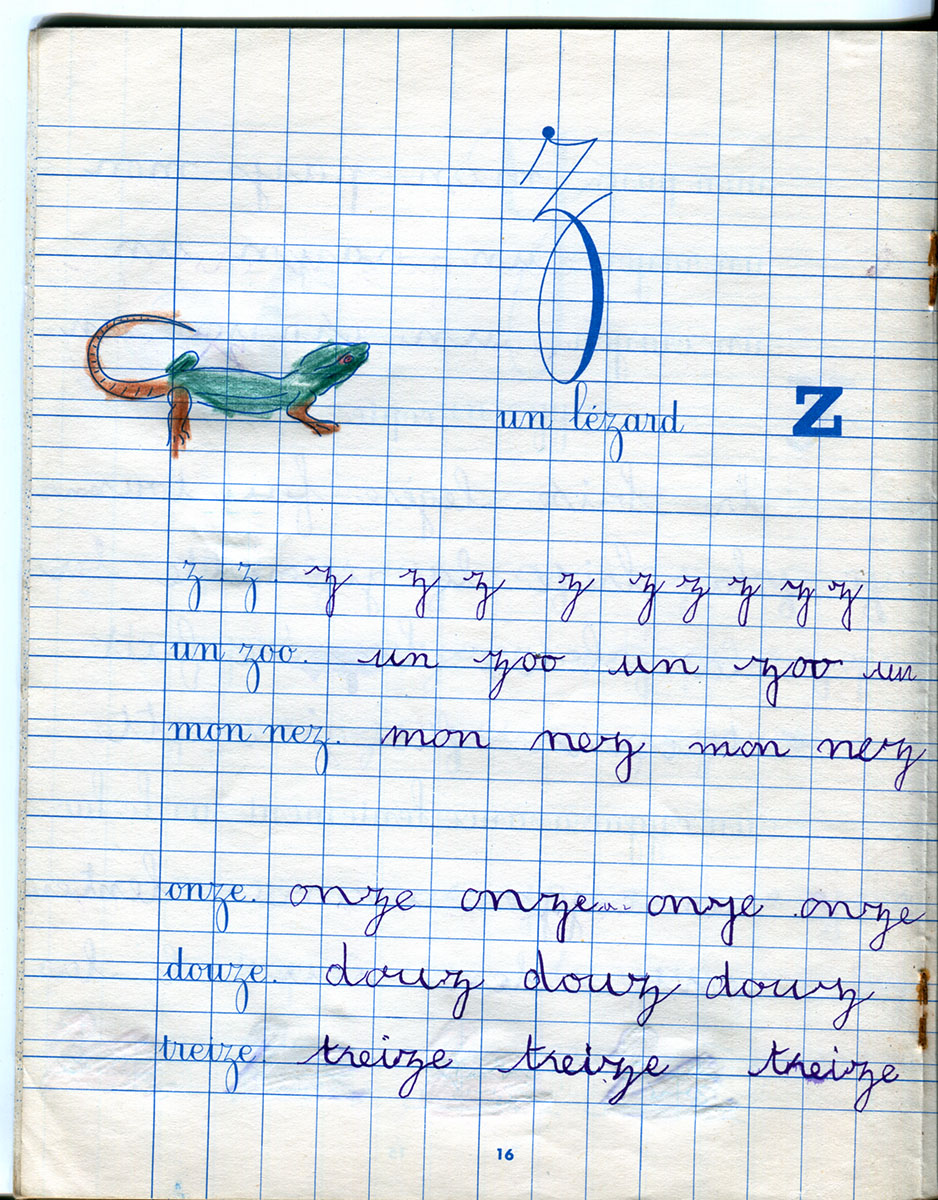 z
un lézard z
z z z z z z z z z z z
un zoo. un zoo un zoo un
mon nez. mon nez mon nez
onze. onze onze onze onze
douze. douz douz douz
treize treize treize treize
16